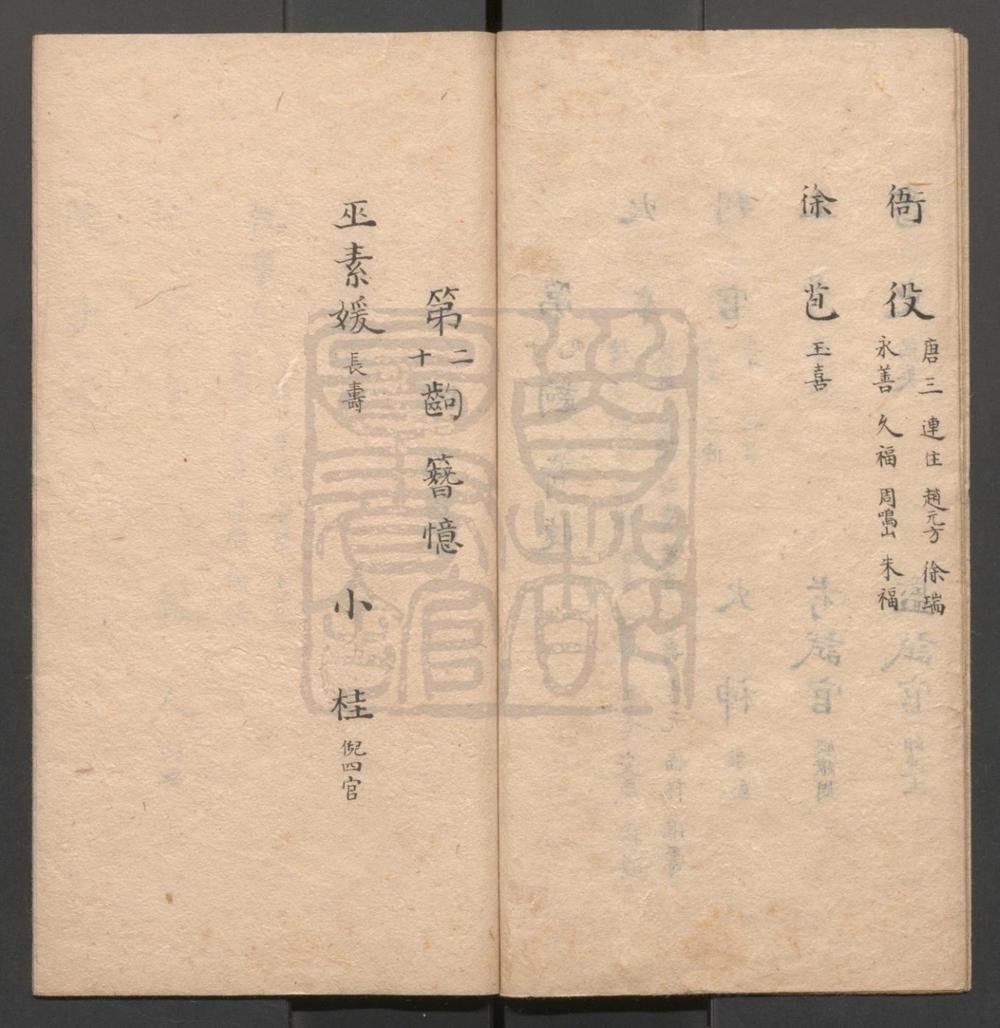 衙役 唐三 連住 趙元方 徐瑞
永善 久福 周鳴山 朱福
徐苞 玉嘉
第十二齣 簪憶
巫素媛 長壽 小桂 倪四官